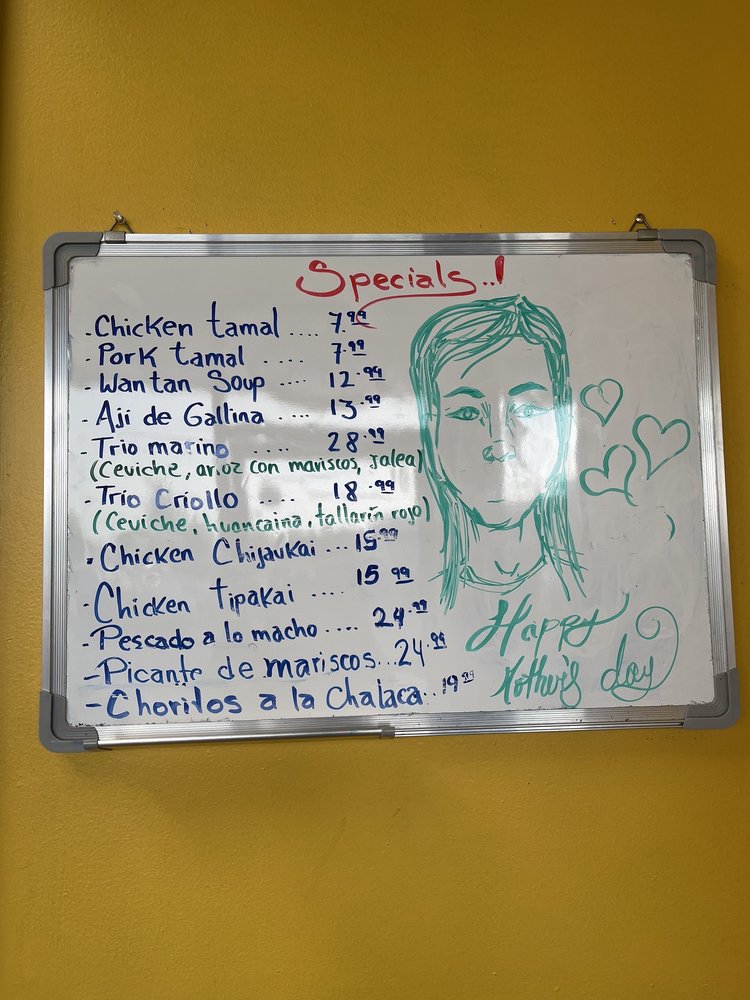 Specials..!
- Chicken tamal .... 7.99
- Pork tamal .... 7.99
- Wantan Soup .... 12.99
- Aji de Gallina .... 13.99
- Trio marino .... 28.99
(Ceviche, arroz con mariscos, Jalea)
- Trio Criollo .... 18.99
(Ceviche, huancaina, tallarin rojo)
- Chicken Chijaukai ... 15.99
- Chicken tipakai .... 15 99
- Pescado a lo macho .... 24.99
- Picante de mariscos... 24.99
- Choritos a la Chalaca.. 19.99
Happy
Mother's day